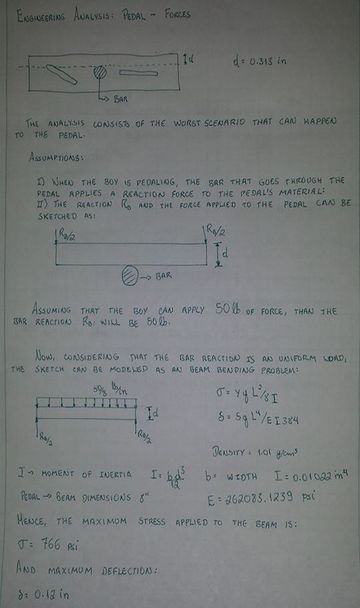 ENGINEERING ANALYSIS: PEDAL - FORCES
d
d = 0.313 in
→ BAR
THE ANALYSIS CONSISTS OF THE WORST SCENARIO THAT CAN HAPPEN
TO THE PEDAL.
ASSUMPTIONS:
I) WHEN THE BOY IS PEDALING, THE BAR THAT GOES THROUGH THE
PEDAL APPLIES A REACTION FORCE TO THE PEDAL'S MATERIAL:
II) THE REACTION RB AND THE FORCE APPLIED TO THE PEDAL CAN BE
SKETCHED AS:
RB/2 RB/2
d
→ BAR
ASSUMING THAT THE BOY CAN APPLY 50 lb OF FORCE, THAN THE
BAR REACTION RB WILL BE 50 lb.
NOW, CONSIDERING THAT THE BAR REACTION IS AN UNIFORM LOAD,
THE SKETCH CAN BE MODELED AS AN BEAM BENDING PROBLEM:
50/8 lb/in
σ = y q L²/8 I
d
δ = 5q L⁴/E I 384
RB/2 RB/2
DENSITY = 1.01 g/cm³
I → MOMENT OF INERTIA I = bd³/12 b = WIDTH I = 0.01022 in⁴
PEDAL → BEAM DIMENSIONS 8" E = 262083.1239 psi
HENCE, THE MAXIMUM STRESS APPLIED TO THE BEAM IS:
σ = 766 psi
AND MAXIMUM DEFLECTION:
δ = 0.12 in